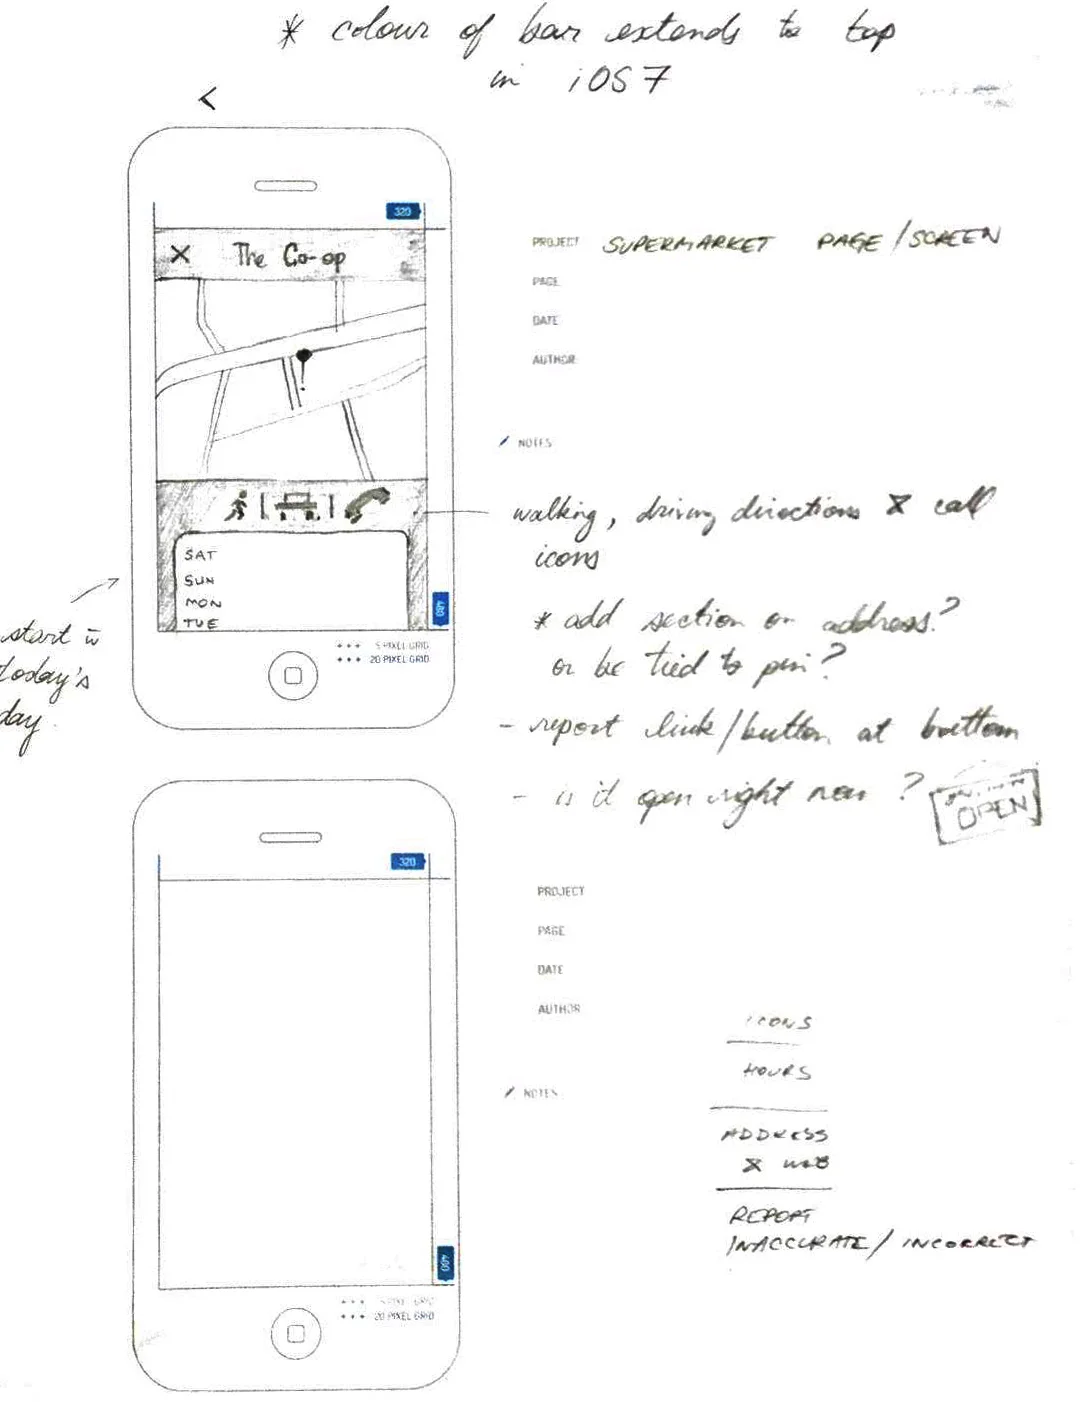 * colour of bar extends to top
in iOS 7
<
320
X The Co-op
PROJECT SUPERMARKET PAGE/SCREEN
PAGE
DATE
AUTHOR
NOTES
walking, driving directions & call
icons
SAT
SUN
MON
TUE
480
5 PIXEL GRID
20 PIXEL GRID
start w
today's
day.
* add section on address?
or be tied to pin?
- report link/button at bottom
- is it open right now?
OPEN
320
PROJECT
PAGE
DATE
AUTHOR
NOTES
ICONS
HOURS
ADDRESS
& WEB
REPORT
INACCURATE/INCORRECT
480
5 PIXEL GRID
20 PIXEL GRID